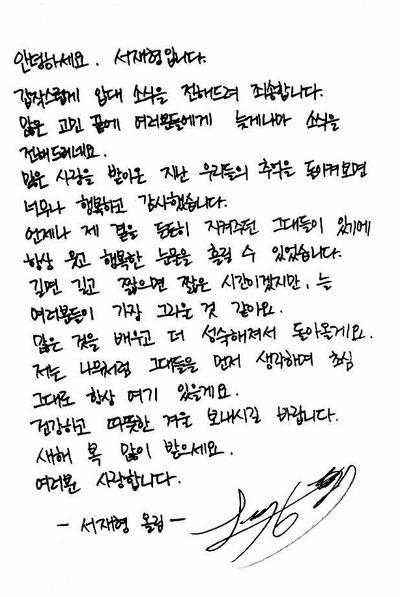 안녕하세요. 서재형입니다.
갑작스럽게 입대 소식을 전해드려 죄송합니다.
많은 고민 끝에 여러분들에게 늦게나마 소식을
전해드리네요.
많은 사랑을 받아온 지난 우리들의 추억을 돌아켜보면
너무나 행복하고 감사했습니다.
언제나 제 곁을 든든히 지켜주던 그대들이 있기에
항상 웃고 행복한 눈물을 흘릴 수 있었습니다.
길면 길고 짧으면 짧은 시간이겠지만, 늘
여러분들이 가장 그리운 것 같아요.
많은 것을 배우고 더 성숙해져서 돌아올게요.
저는 나무처럼 그대들을 먼저 생각하며 초심
그대로 항상 여기 있을게요.
건강하고 따뜻한 겨울 보내시길 바랍니다.
새해 복 많이 받으세요.
여러분 사랑합니다.
- 서재형 올림 -